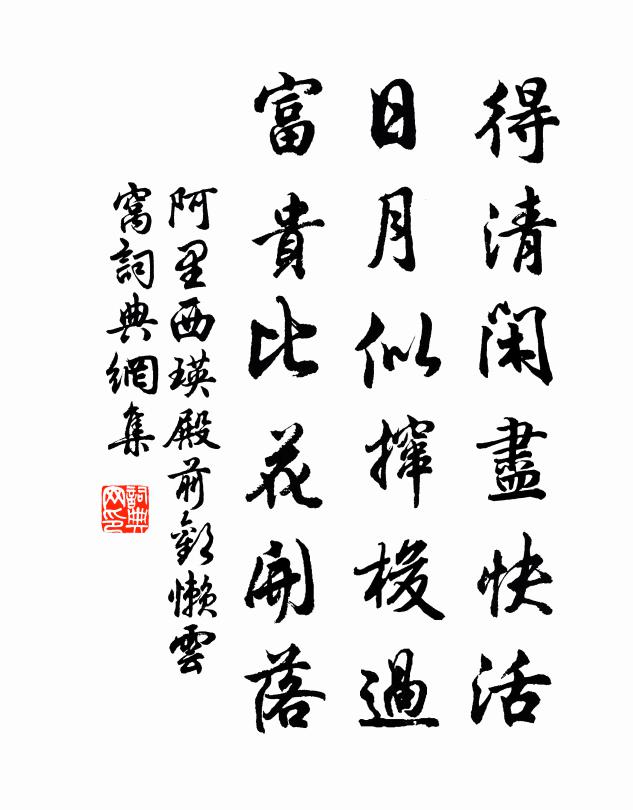 得清閑盡快活
日月似攛梭過
富貴比花開落
阿里西瑛殿前歡懶雲
窩詞典網集
詞典
网印